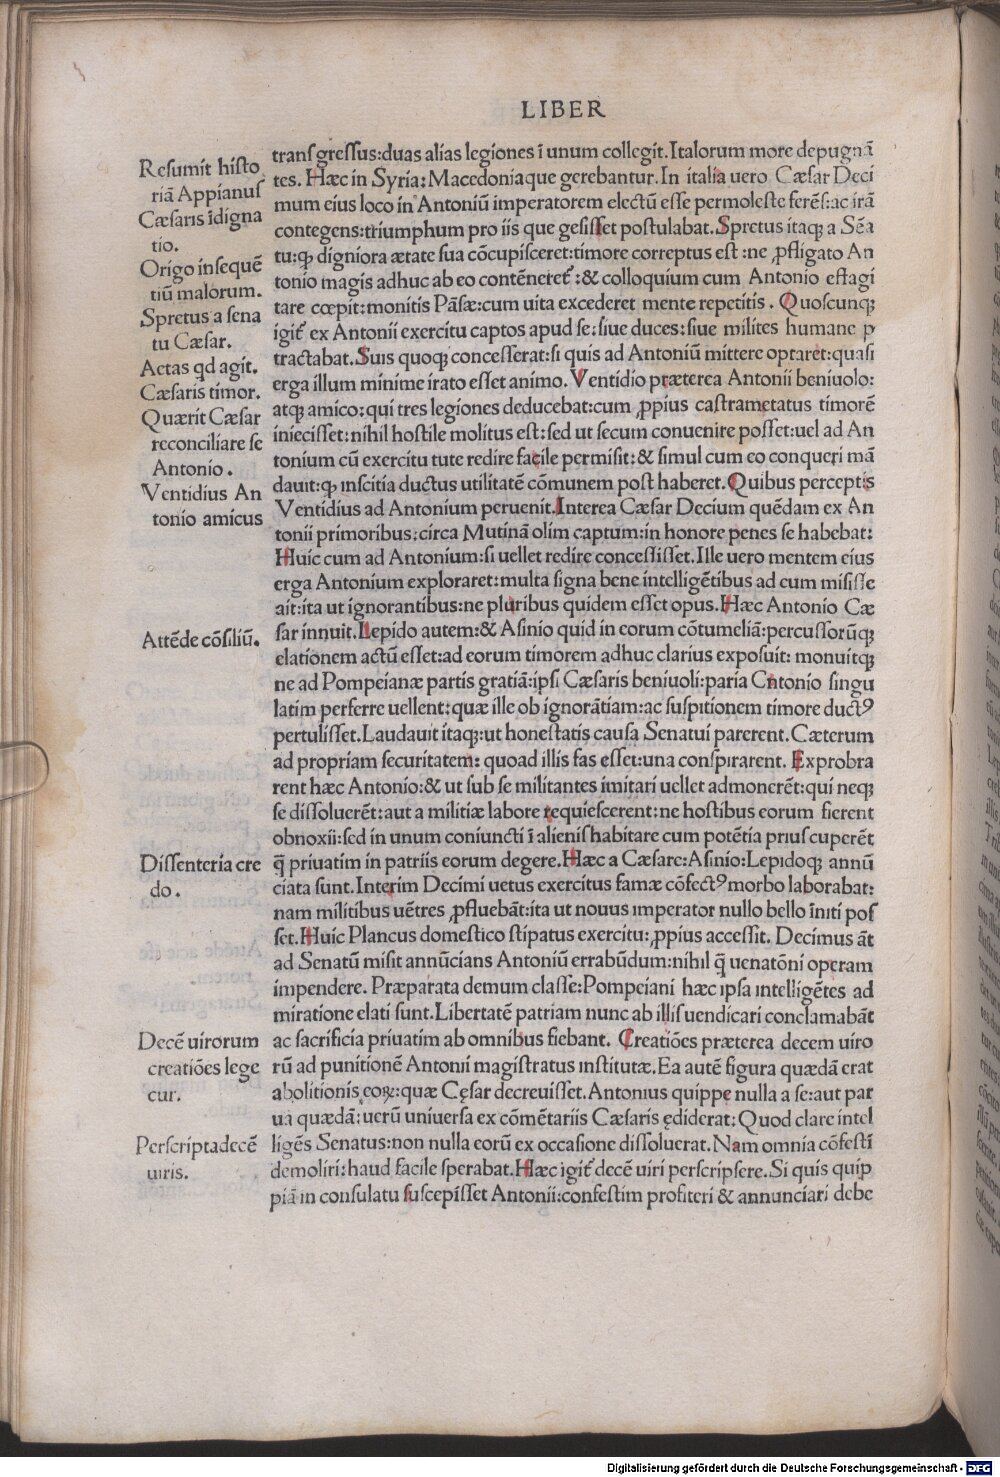 LIBER
Resumit histo
riā Appianus
Cæsaris īdigna
tio.
Origo insequē
tiū malorum.
Spretus a sena
tu Cæsar.
Aetas qd agit.
Cæsaris timor.
Quærit Cæsar
reconciliare se
Antonio.
Ventidius An
tonio amicus
Attēde cōsiliū.
Dissenteria cre
do.
Decē uirorum
creatiōes lege
cur.
Perscripta decē
uiris.
transgressus: duas alias legiones ī unum collegit. Italorum more depugnā
tes. Hæc in Syria: Macedoniaque gerebantur. In italia uero Cæsar Deci
mum eius loco in Antoniū imperatorem electū esse permoleste ferēs: ac irā
contegens: triumphum pro iis que gesisset postulabat. Spretus itaqꝫ a Sēa
tu: qꝫ digniora ætate sua cōcupisceret: timore correptus est: ne ꝓfligato An
tonio magis adhuc ab eo contēneret᷑: & colloquium cum Antonio effagi
tare cœpit: monitis Pāsæ: cum uita excederet mente repetitis. Quoscunqꝫ
igit᷑ ex Antonii exercitu captos apud se: siue duces: siue milites humane p
tractabat. Suis quoqꝫ concesserat: si quis ad Antoniū mittere optaret: quasi
erga illum minime irato esset animo. Ventidio præterea Antonii beniuolo:
atqꝫ amico: qui tres legiones deducebat: cum ꝓpius castrametatus timorē
iniecisset: nihil hostile molitus est: sed ut secum conuenire posset: uel ad An
tonium cū exercitu tute redire facile permisit: & simul cum eo conqueri mā
dauit: qꝫ inscitia ductus utilitatē cōmunem post haberet. Quibus perceptis
Ventidius ad Antonium peruenit. Interea Cæsar Decium quēdam ex An
tonii primoribus: circa Mutinā olim captum: in honore penes se habebat:
Huic cum ad Antonium: si uellet redire concessisset. Ille uero mentem eius
erga Antonium exploraret: multa signa bene intelligētibus ad eum misisse
ait: ita ut ignorantibus: ne pluribus quidem esset opus. Hæc Antonio Cæ
sar innuit. Lepido autem: & Asinio quid in eorum cōtumeliā: percussorūqꝫ
elationem actū esset: ad eorum timorem adhuc clarius exposuit: monuitqꝫ
ne ad Pompeianæ partis gratiā: ipsi Cæsaris beniuoli: paria Cntonio singu
latim perferre uellent: quæ ille ob ignorātiam: ac suspitionem timore ductꝰ
pertulisset. Laudauit itaqꝫ: ut honestatis causa Senatui parerent. Cæterum
ad propriam securitatem: quoad illis fas esset: una conspirarent. Exprobra
rent hæc Antonio: & ut sub se militantes imitari uellet admonerēt: qui neqꝫ
se dissoluerēt: aut a militiæ labore requiescerent: ne hostibus eorum fierent
obnoxii: sed in unum coniuncti ī alienis habitare cum potētia prius cuperēt
q̄ priuatim in patriis eorum degere. Hæc a Cæsare: Asinio: Lepidoqꝫ annū
ciata sunt. Interim Decimi uetus exercitus famæ cōfectꝰ morbo laborabat:
nam militibus uētres ꝓfluebāt: ita ut nouus imperator nullo bello īniti pos
set. Huic Plancus domestico stipatus exercitu: ꝓpius accessit. Decimus āt
ad Senatū misit annūcians Antoniū errabūdum: nihil q̄ uenatōni operam
impendere. Præparata demum classe: Pompeiani hæc ipsa intelligētes ad
miratione elati sunt. Libertatē patriam nunc ab illis uendicari conclamabāt
ac sacrificia priuatim ab omnibus fiebant. Creatiōes præterea decem uiro
rū ad punitionē Antonii magistratus institutæ. Ea autē figura quædā erat
abolitionis eoꝝ: quæ Cęsar decreuisset. Antonius quippe nulla a se: aut par
ua quædā: uerū uniuersa ex cōmētariis Cæsaris ędiderat: Quod clare intel
ligēs Senatus: non nulla eorū ex occasione dissoluerat. Nam omnia cōfestī
demoliri: haud facile sperabat. Hæc igit᷑ decē uiri perscripsere. Si quis quip
piā in consulatu suscepisset Antonii: confestim profiteri & annunciari debe
Digitalisierung gefördert durch die Deutsche Forschungsgemeinschaft - DFG